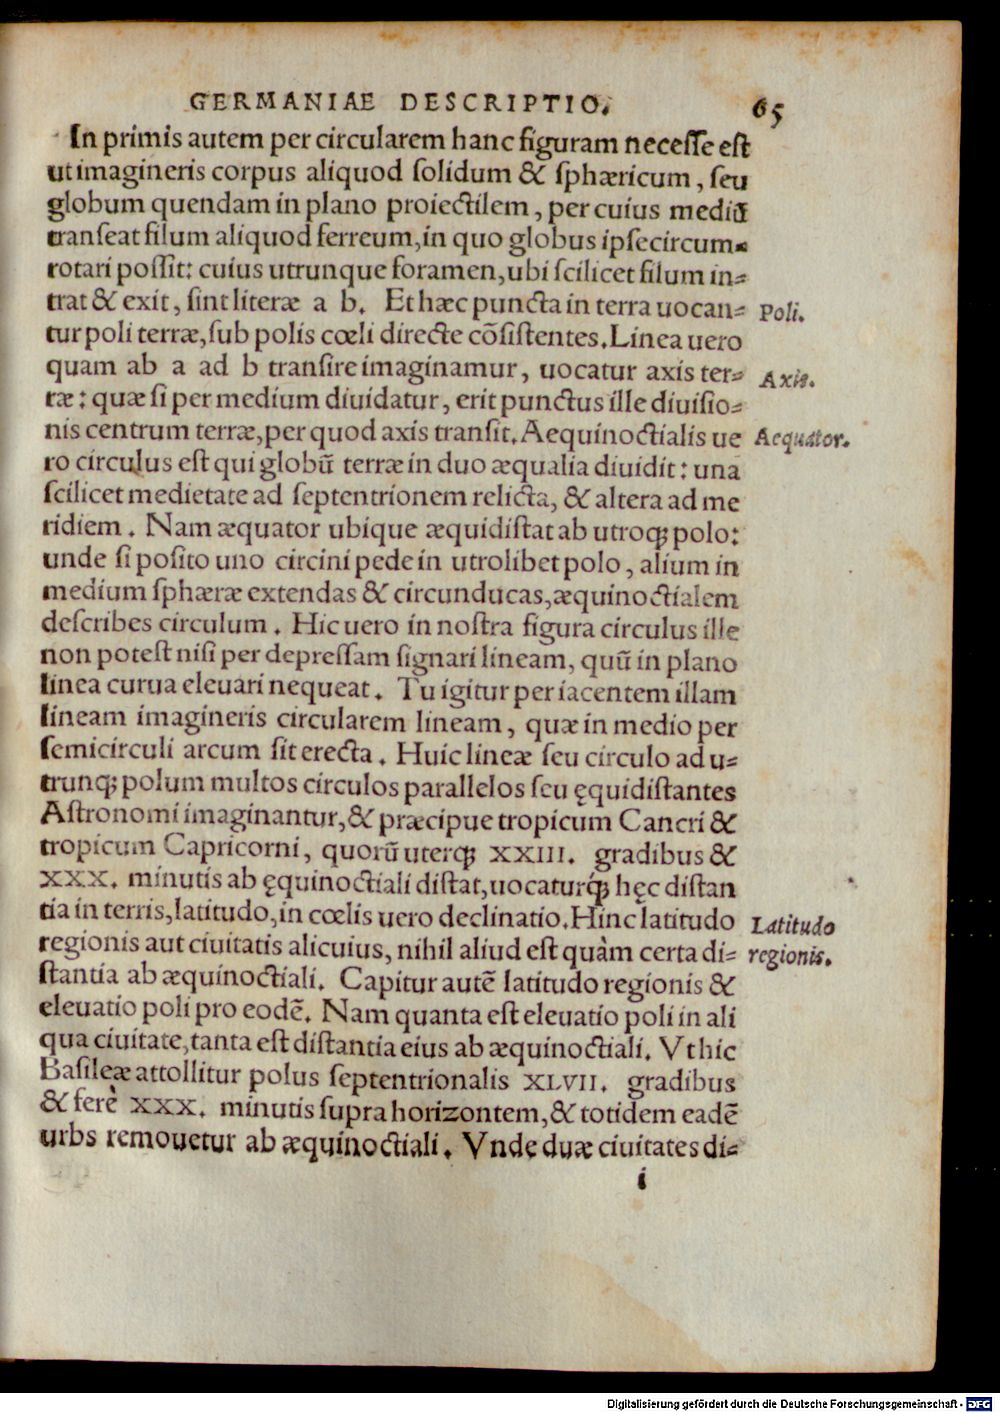 GERMANIAE DESCRIPTIO. 65
In primis autem per circularem hanc figuram necesse est
ut imagineris corpus aliquod solidum & sphæricum, seu
globum quendam in plano proiectilem, per cuius mediũ
transeat filum aliquod ferreum, in quo globus ipse circum-
rotari possit: cuius utrunque foramen, ubi scilicet filum in-
trat & exit, sint literæ a b. Et hæc puncta in terra uocan- Poli.
tur poli terræ, sub polis cœli directe cõsistentes. Linea uero
quam ab a ad b transire imaginamur, uocatur axis ter- Axis.
ræ: quæ si per medium diuidatur, erit punctus ille diuisio-
nis centrum terræ, per quod axis transit. Aequinoctialis ue Aequator.
ro circulus est qui globũ terræ in duo æqualia diuidit: una
scilicet medietate ad septentrionem relicta, & altera ad me
ridiem. Nam æquator ubique æquidistat ab utroq; polo:
unde si posito uno circini pede in utrolibet polo, alium in
medium sphæræ extendas & circunducas, æquinoctialem
describes circulum. Hic uero in nostra figura circulus ille
non potest nisi per depressam signari lineam, quũ in plano
linea curua eleuari nequeat. Tu igitur per iacentem illam
lineam imagineris circularem lineam, quæ in medio per
semicirculi arcum sit erecta. Huic lineæ seu circulo ad u-
trunq; polum multos circulos parallelos seu ęquidistantes
Astronomi imaginantur, & præcipue tropicum Cancri &
tropicum Capricorni, quorũ uterq; XXIII. gradibus &
XXX. minutis ab ęquinoctiali distat, uocaturq́; hęc distan
tia in terris, latitudo, in cœlis uero declinatio. Hinc latitudo Latitudo
regionis aut ciuitatis alicuius, nihil aliud est quàm certa di- regionis.
stantia ab æquinoctiali. Capitur autẽ latitudo regionis &
eleuatio poli pro eodẽ. Nam quanta est eleuatio poli in ali
qua ciuitate, tanta est distantia eius ab æquinoctiali. Vt hic
Basileæ attollitur polus septentrionalis XLVII. gradibus
& ferè XXX. minutis supra horizontem, & totidem eadẽ
urbs remouetur ab æquinoctiali. Vnde duæ ciuitates di-
i
Digitalisierung gefördert durch die Deutsche Forschungsgemeinschaft - DFG